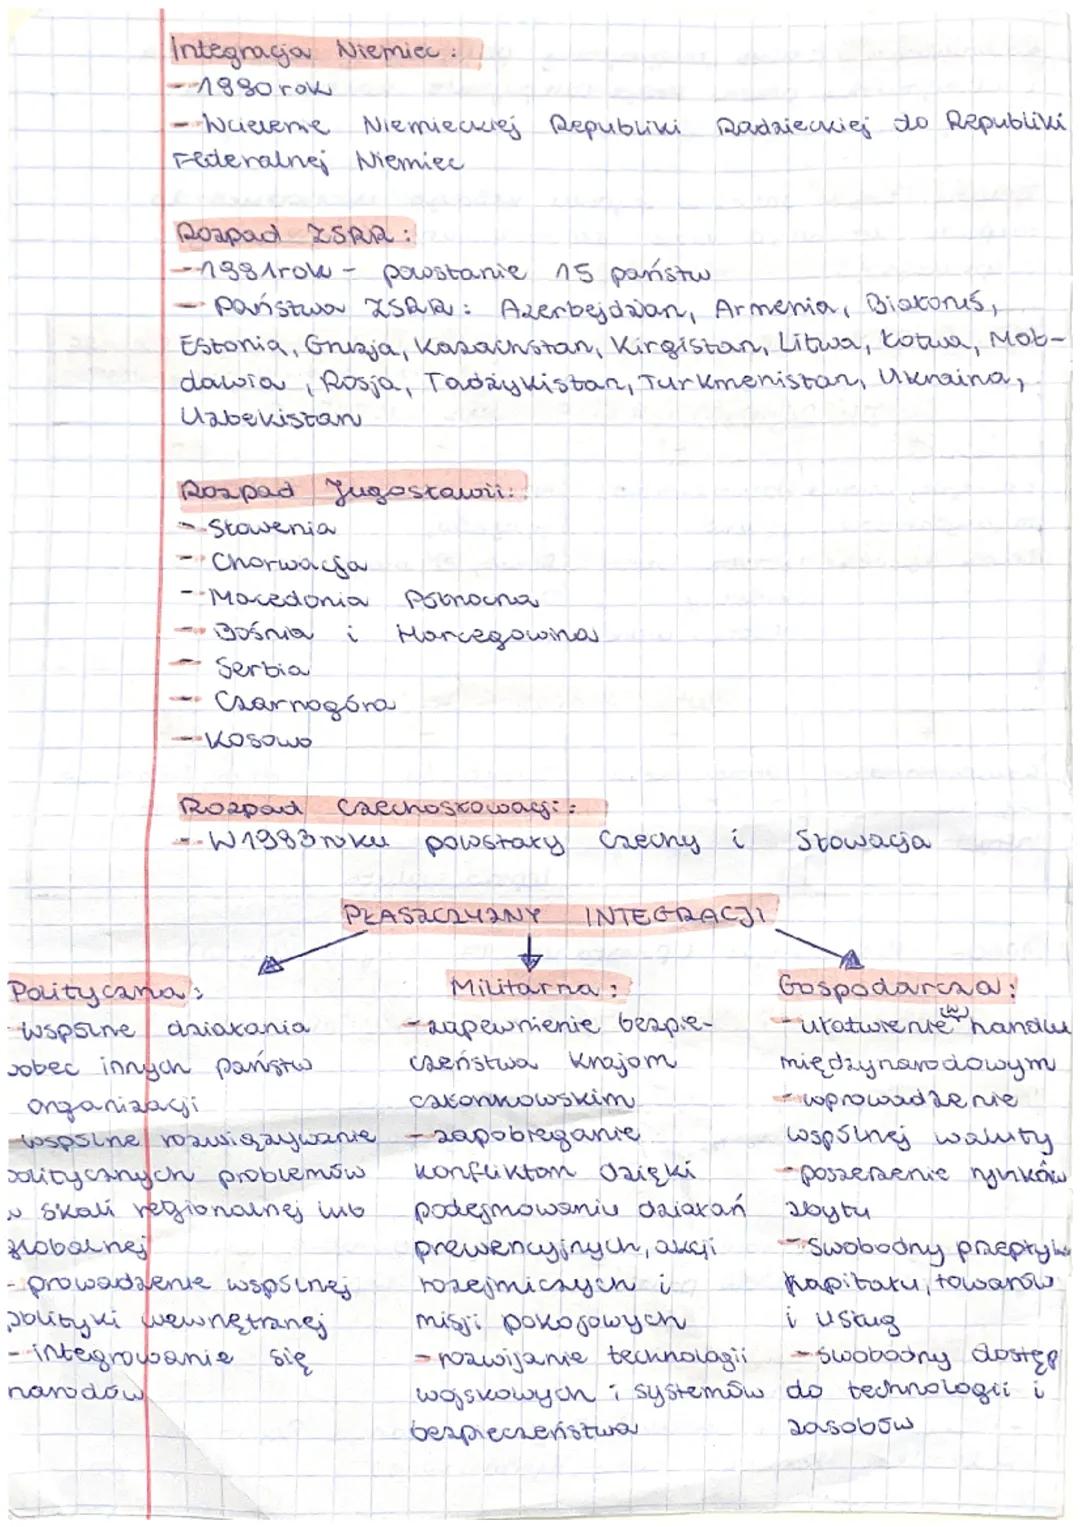 Integracja Niemiec:
- 1990 rok
- Wcielenie Niemieckiej Republiki Radzieckiej do Republiki
Federalnej Niemiec
Rozpad ZSRR:
- 1991 rok - powstanie 15 państw
- Państwa ZSRR: Azerbejdżan, Armenia, Białoruś,
Estonia, Gruzja, Kazachstan, Kirgistan, Litwa, Łotwa, Moł-
dawia, Rosja, Tadżykistan, Turkmenistan, Ukraina,
Uzbekistan
Rozpad Jugosławii:
- Słowenia
- Chorwacja
- Macedonia Północna
- Bośnia i Harcegowina
- Serbia
- Czarnogóra
- Kosowo
Rozpad Czechosłowacji:
- W 1993 roku powstały Czechy i Słowacja
PŁASZCZYZNY INTEGRACJI
Polityczna:
- wspólne działania
wobec innych państw
organizacji
- wspólne rozwiązywanie
politycznych problemów
w skali regionalnej lub
globalnej
- prowadzenie wspólnej
polityki wewnętrznej
- integrowanie się
narodów
Militarna:
- zapewnienie bezpie-
czeństwa krajom
członkowskim
- zapobieganie
konfliktom dzięki
podejmowaniu działań
prewencyjnych, akcji
rozejmiczych i
misji pokojowych
- rozwijanie technologii
wojskowych i systemów
bezpieczeństwa
Gospodarcza:
- ułatwienie w handlu
międzynarodowym
- wprowadzenie
wspólnej waluty
- poszerzenie rynków
zbytu
- swobodny przepływ
kapitału, towarów
i usług
- swobodny dostęp
do technologii i
zasobów